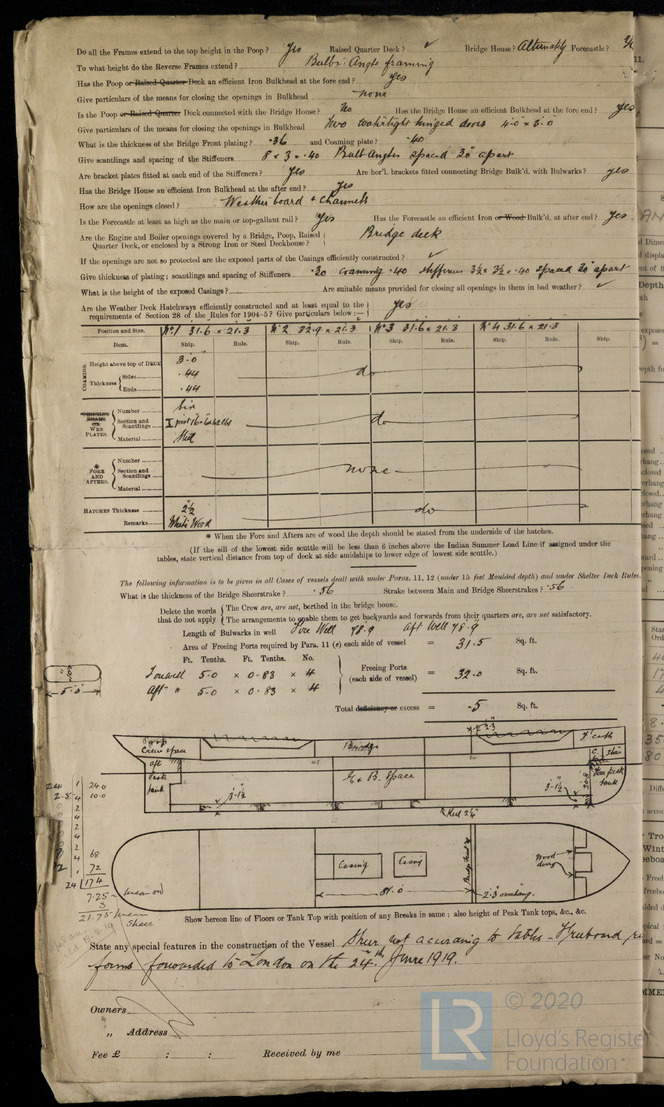 Do all the Frames extend to the top height in the Poop? Yes Raised Quarter Deck? ✓ Bridge House? Alternately Forecastle?
To what height do the Reverse Frames extend? Bulb Angle framing
Has the Poop or Raised Quarter Deck an efficient Iron Bulkhead at the fore end? Yes
Give particulars of the means for closing the openings in Bulkhead none
Is the Poop or Raised Quarter Deck connected with the Bridge House? No Has the Bridge House an efficient Bulkhead at the fore end? yes
Give particulars of the means for closing the openings in Bulkhead two watertight hinged doors 4.0 x 3.0
What is the thickness of the Bridge Front plating? .36 and Coaming plate? .40
Give scantlings and spacing of the Stiffeners 8 x 3 x .40 Bulb Angles spaced 30" apart
Are bracket plates fitted at each end of the Stiffeners? Yes Are hor'l. brackets fitted connecting Bridge Bulk'd. with Bulwarks? yes
Has the Bridge House an efficient Iron Bulkhead at the after end? Yes
How are the openings closed? Weather board + Channels
Is the Forecastle at least as high as the main or top-gallant rail? Yes Has the Forecastle an efficient Iron or Wood Bulk'd. at after end? yes
Are the Engine and Boiler openings covered by a Bridge, Poop, Raised Bridge deck
Quarter Deck, or enclosed by a Strong Iron or Steel Deckhouse?
If the openings are not so protected are the exposed parts of the Casings efficiently constructed? ✓
Give thickness of plating; scantlings and spacing of Stiffeners .30 Coaming .40 Stiffeners 3½ x 3½ x .40 spaced 30" apart
What is the height of the exposed Casings? Are suitable means provided for closing all openings in them in bad weather? ✓
Are the Weather Deck Hatchways efficiently constructed and at least equal to the Yes
requirements of Section 28 of the Rules for 1904-5? Give particulars below:—
Position and Size. No 1 31.6 x 21.3 No 2 32.9 x 21.3 No 3 31.6 x 21.3 No 4 31.6 x 21.3
Item. Ship. Rule. Ship. Rule. Ship. Rule. Ship. Rule.
COAMING.
Height above top of DECK 3-0
Thickness Sides .44 do
Ends .44
WEB PLATES.
Number Six
Section and Scantlings do
Material Steel
* FORE AND AFTERS.
Number
Section and Scantlings none
Material
HATCHES Thickness 2½ do
Remarks White Wood
* When the Fore and Afters are of wood the depth should be stated from the underside of the hatches.
(If the sill of the lowest side scuttle will be less than 6 inches above the Indian Summer Load Line if assigned under the
tables, state vertical distance from top of deck at side amidships to lower edge of lowest side scuttle.)
The following information is to be given in all Cases of vessels dealt with under Paras. 11, 12 (under 15 feet Moulded depth) and under Shelter Deck Rules.
What is the thickness of the Bridge Sheerstrake? .56 Strake between Main and Bridge Sheerstrakes? .56
Delete the words The Crew are, are not, berthed in the bridge house.
that do not apply The arrangements to enable them to get backwards and forwards from their quarters are, are not satisfactory.
Length of Bulwarks in well Fore Well 78.9 Aft Well 78.9
Area of Freeing Ports required by Para. 11 (e) each side of vessel = 31.5 Sq. ft.
Ft. Tenths. Ft. Tenths. No.
Forewell 5.0 x 0.83 x 4
Freeing Ports (each side of vessel) = 32.0 Sq. ft.
Aft " 5.0 x 0.83 x 4
Total deficiency or excess = .5 Sq. ft.
5.0
Poop
Crew space
Bridge
F'castle
aft
Peak
tank
E & B. Space
Fore peak
tank
3-1½
3-1½
Keel 2¼
Casing
Casing
Bridge Front
Wood
ding
84.0
2.3 overhang.
24
24.0
10.0
68
72
24 174
7.25
3
21.75
mean
Sheer
Show hereon line of Floors or Tank Top with position of any Breaks in same; also height of Peak Tank tops, &c., &c.
State any special features in the construction of the Vessel Sheer not according to tables - Freeboard
forms forwarded to London on the 24th June 1919.
Owners
„ Address
Fee £ : : Received by me
LR
© 2020
Lloyd's Register
Foundation